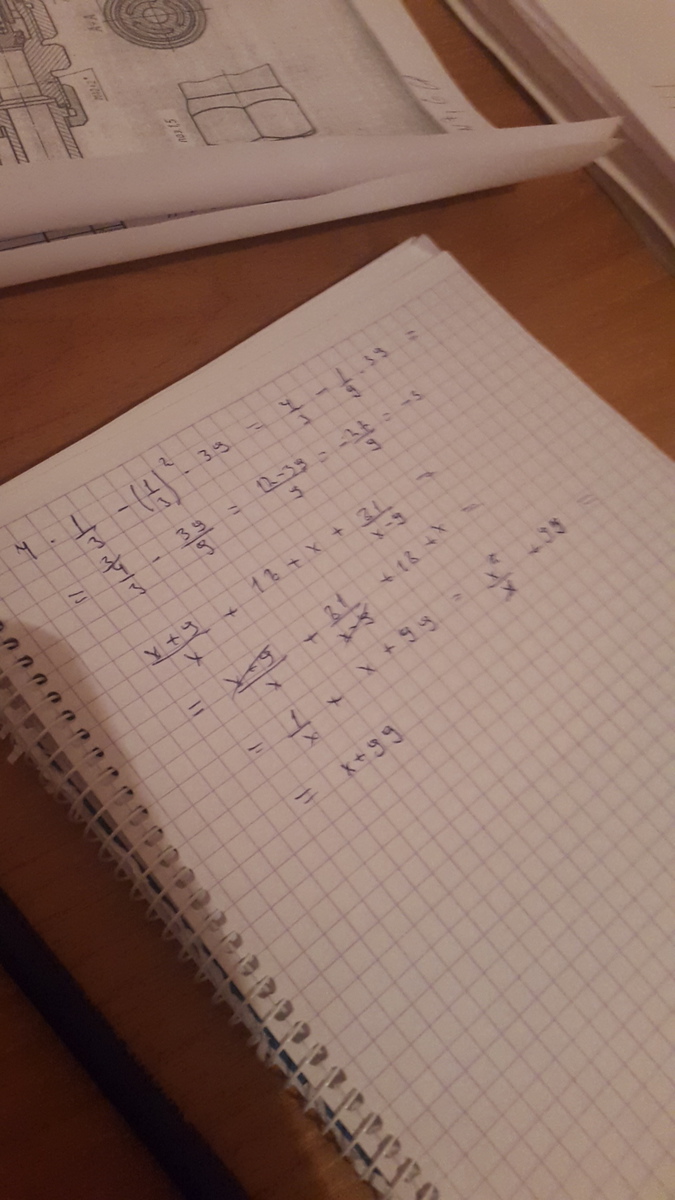 4 · 1/3 − (1/3)² · 39 = 4/3 − 1/9 · 39 =
= ³⁾4/3 − 39/9 = 12−39/9 = −27/9 = −3
x+9/x + 18 + x + 81/x−9 =
= x+9/x + 81/x−9 + 18 + x =
= 1/x + x + 99 = x²/x + 99 =
= x + 99